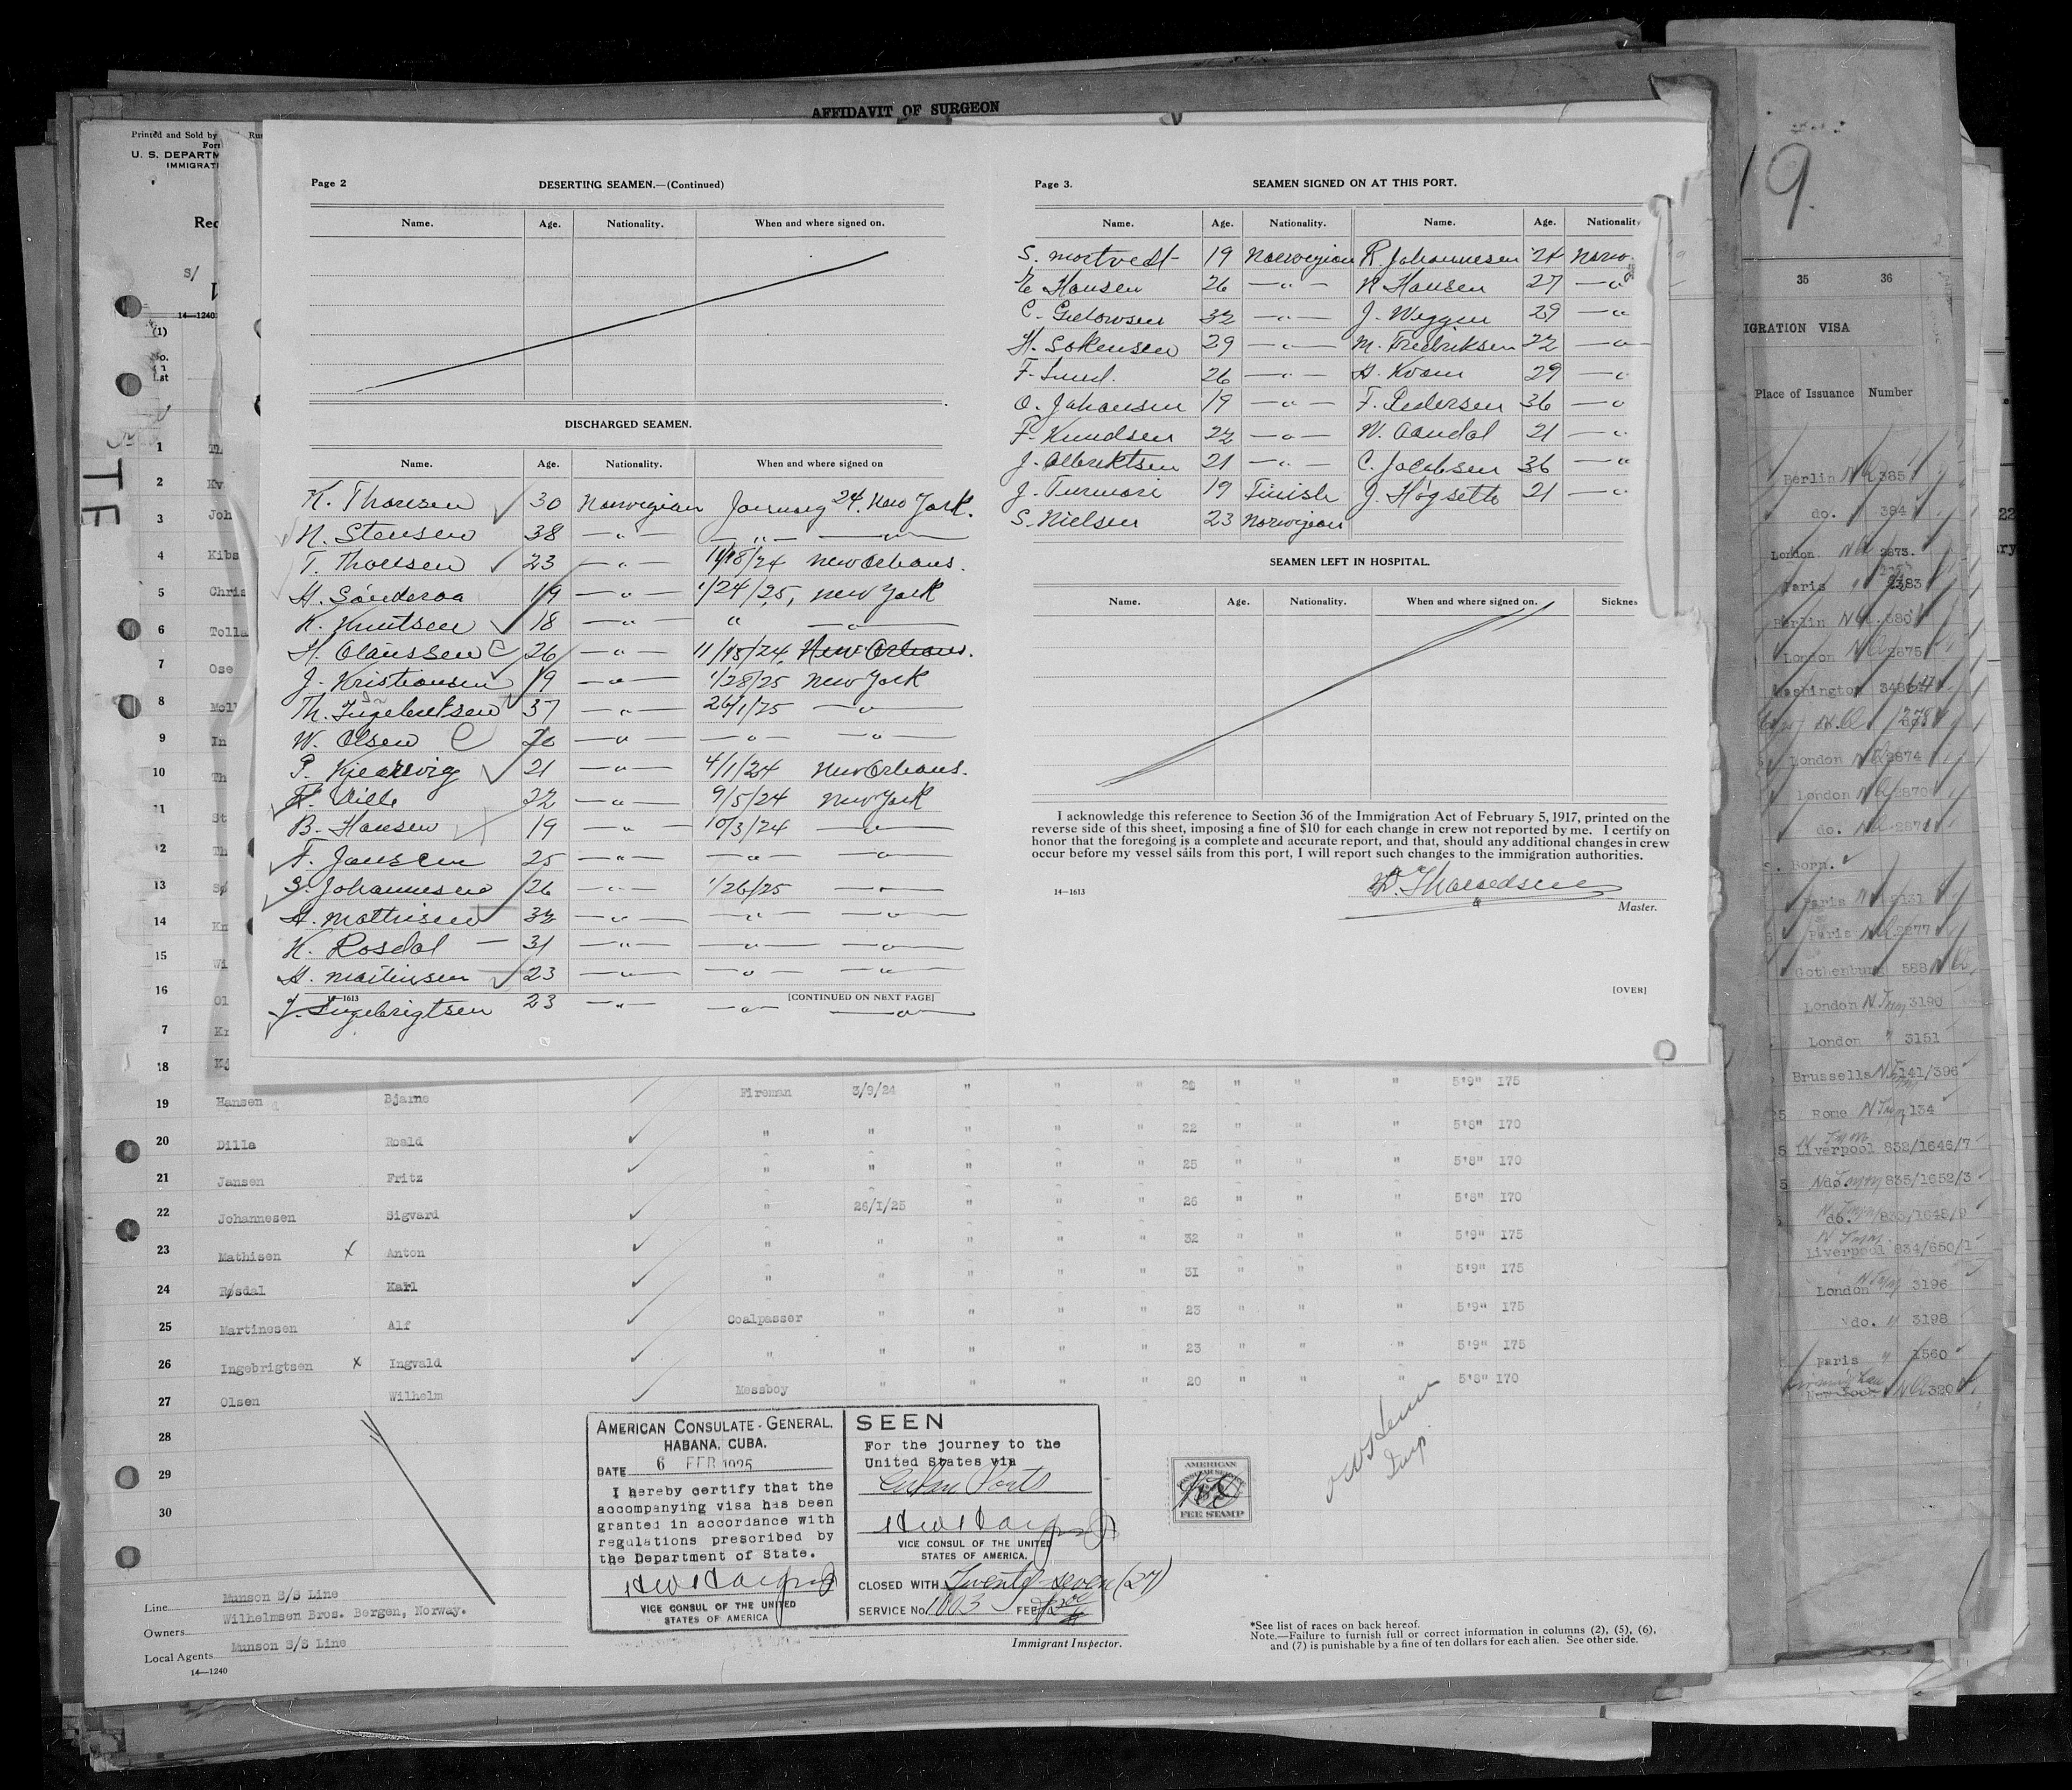 AFFIDAVIT OF SURGEON
Printed and Sold by
U. S. DEPARTM
IMMIGRATI
Rec
S/
14—1240
(1)
Page 2
DESERTING SEAMEN.—(Continued)
Name. Age. Nationality. When and where signed on.
DISCHARGED SEAMEN.
Name. Age. Nationality. When and where signed on
K. Thorsen 30 Norwegian January 24. New York.
N. Stensen 38 —"— —"— —"—
T. Thorsen 23 —"— 11/18/24 New Orleans.
H. Sönderaa 19 —"— 1/24/25, New York
K. Knutsen 18 —"— " —"—
H. Olaussen 26 —"— 11/15/24, New Orleans.
J. Kristiansen 19 —"— 1/28/25 New York
Th. Ingebretsen 37 —"— 26/1/25 —"—
W. Olsen 20 —"— —"— —"—
P. Kjeilevig 21 —"— 4/1/24 New Orleans.
R. Dille 22 —"— 9/5/24 New York
B. Hansen 19 —"— 10/3/24 —"—
F. Jansen 25 —"— —"— —"—
S. Johannesen 26 —"— 1/26/25 —"—
A. Mathisen 32 —"— —"— —"—
K. Rosdal 31 —"— —"— —"—
A. Martinsen 23 —"— —"— —"—
14—1613 [CONTINUED ON NEXT PAGE]
J. Ingebrigtsen 23 —"— —"— —"—
Page 3.
SEAMEN SIGNED ON AT THIS PORT.
Name. Age. Nationality. Name. Age. Nationality
S. Mortvedt 19 Norwegian R. Johannesen 24 Norw.
E Hansen 26 —"— N Hansen 27 —"
C. 32 —"— J. Weggen 29 —"
H. Sorensen 29 —"— M. Fredriksen 22 —"—
F. Lund. 26 —"— A. Kvam 29 —"
O. Johansen 19 —"— F. Pedersen 36 —"
F. Knudsen 22 —"— W. Aandal 21 —"
J. Albriktsen 21 —"— C. Jacobsen 36 —"
J. Turmori 19 Finish J. Høgseth 21 —"
S. Nielsen 23 Norwegian
SEAMEN LEFT IN HOSPITAL.
Name. Age. Nationality. When and where signed on. Sicknes
I acknowledge this reference to Section 36 of the Immigration Act of February 5, 1917, printed on the
reverse side of this sheet, imposing a fine of $10 for each change in crew not reported by me. I certify on
honor that the foregoing is a complete and accurate report, and that, should any additional changes in crew
occur before my vessel sails from this port, I will report such changes to the immigration authorities.
14—1613
Master.
[OVER]
1 Th
2 Kv
3 Joh
4 Kibs
5 Chris
6 Tolla
7 Ose
8 Moll
9 In
10 Th
11 St
12 Th
13 Sø
14 Kn
15 Wi
16 Ol
7 Kr
18 Kj
19 Hansen Bjarne Fireman 3/9/24 " " " 20 " " " 5'9" 175
20 Dille Roald " " " " " 22 " " " 5'8" 170
21 Jansen Fritz " " " " " 25 " " " 5'8" 170
22 Johannesen Sigvard " 26/1/25 " " " 26 " " " 5'8" 170
23 Mathisen x Anton " " " " " 32 " " " 5'9" 175
24 Røsdal Karl " " " " " 31 " " " 5'9" 175
25 Martinesen Alf Coalpasser " " " " 23 " " " 5'9" 175
26 Ingebrigtsen x Ingvald " " " " " 23 " " " 5'9" 175
27 Olsen Wilhelm Messboy " " " " 20 " " " 5'8" 170
28
29
30
AMERICAN CONSULATE-GENERAL.
HABANA, CUBA.
DATE 6 FEB 1925
I hereby certify that the
accompanying visa has been
granted in accordance with
regulations prescribed by
the Department of State.
VICE CONSUL OF THE UNITED
STATES OF AMERICA
SEEN
For the journey to the
United States via
Cuban Ports
VICE CONSUL OF THE UNITED
STATES OF AMERICA.
CLOSED WITH Twenty-seven (27)
SERVICE No. 1003 FEE
AMERICAN
CONSULAR SERVICE
FEE STAMP
Insp
Line Munson S/S Line
Owners Wilhelmsen Bros. Bergen, Norway.
Local Agents Munson S/S Line
14—1240
Immigrant Inspector.
*See list of races on back hereof.
Note.—Failure to furnish full or correct information in columns (2), (5), (6),
and (7) is punishable by a fine of ten dollars for each alien. See other side.
19.
35 36
IGRATION VISA
Place of Issuance Number
Berlin 385
do. 384
London 2873
Paris 2383
Berlin 386
London 2875
Washington
London 2874
London 2870
do. 2871
Born.
Paris 3131
Paris 2877
Gothenburg 588
London 3190
London " 3151
Brussels 141/396
Rome 134
Liverpool 832/1646/7
do. 835/1652/3
do. 833/1648/9
Liverpool 834/650/1
London 3196
do. " 3198
Paris " 1560
New York 320